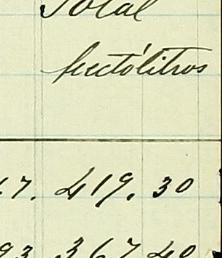 Total
hectólitros
17. 419. 30
93. 367 40